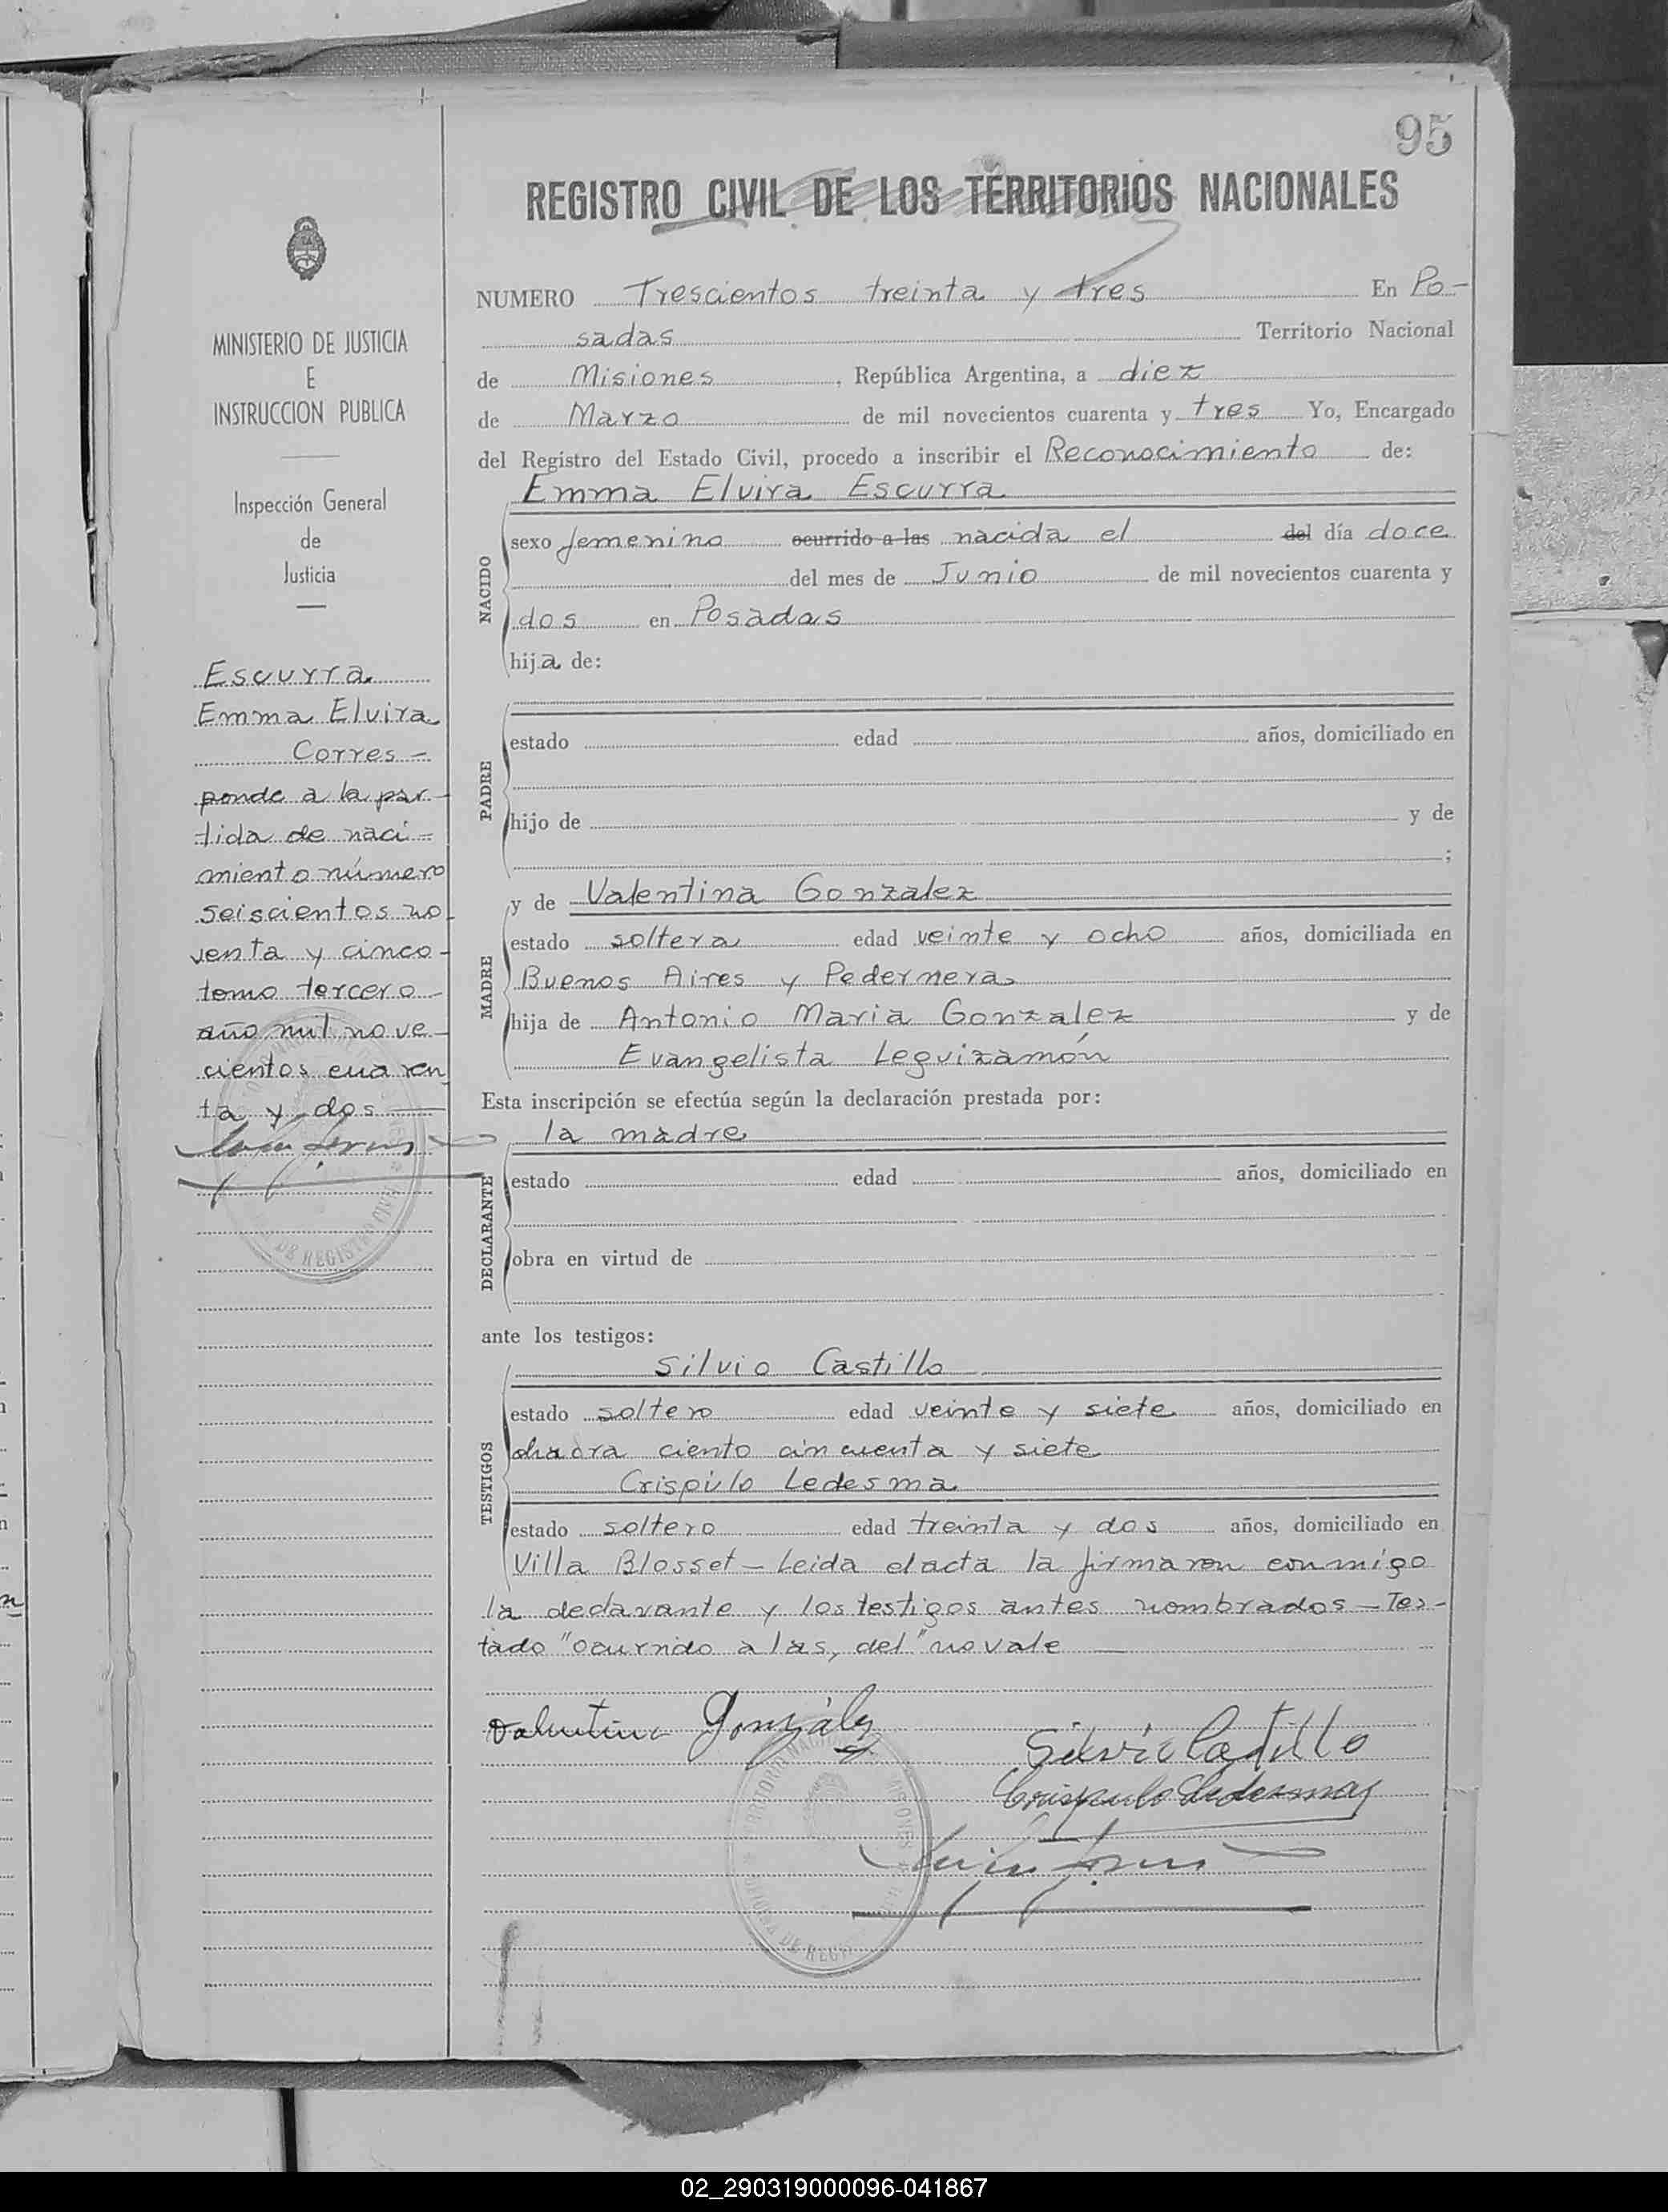 95
REGISTRO CIVIL DE LOS TERRITORIOS NACIONALES
NUMERO Trescientos treinta y tres En Po-
sadas Territorio Nacional
de Misiones, República Argentina, a diez
de Marzo de mil novecientos cuarenta y tres Yo, Encargado
del Registro del Estado Civil, procedo a inscribir el Reconocimiento de:
Emma Elvira Escurra
NACIDO
sexo femenino ocurrido a las nacida el del día doce
del mes de Junio de mil novecientos cuarenta y
dos en Posadas
hija de:
PADRE
estado edad años, domiciliado en
hijo de y de
;
y de Valentina Gonzalez
MADRE
estado soltera edad veinte y ocho años, domiciliada en
Buenos Aires y Pedernera
hija de Antonio Maria Gonzalez y de
Evangelista Leguizamón
Esta inscripción se efectúa según la declaración prestada por:
la madre
DECLARANTE
estado edad años, domiciliado en
obra en virtud de
ante los testigos:
Silvio Castillo
TESTIGOS
estado soltero edad veinte y siete años, domiciliado en
chacra ciento cincuenta y siete
Crispúlo Ledesma
estado soltero edad treinta y dos años, domiciliado en
Villa Blosset - Leida el acta la firmaron conmigo
la declarante y los testigos antes nombrados - Tes-
tado "ocurrido a las, del" no vale
Valentina González
Silvio Castillo
Crispulo Ledesma
MINISTERIO DE JUSTICIA
E
INSTRUCCION PUBLICA
Inspección General
de
Justicia
Escurra
Emma Elvira
Corres-
ponde a la par-
tida de naci-
miento número
seiscientos no-
venta y cinco-
tomo tercero-
año mil nove-
cientos cuaren
ta y dos
DE REGISTRO CIVIL
02_290319000096-041867